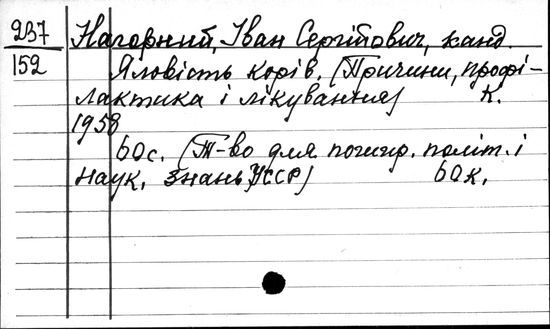 237 Нагорний, Іван Сергійович, канд.
152 Яловість корів. (Причини, профі-
лактика і лікування) К.
1958
60с. (Т-во для пошир. політ. і
наук. знань УССР) 60к.